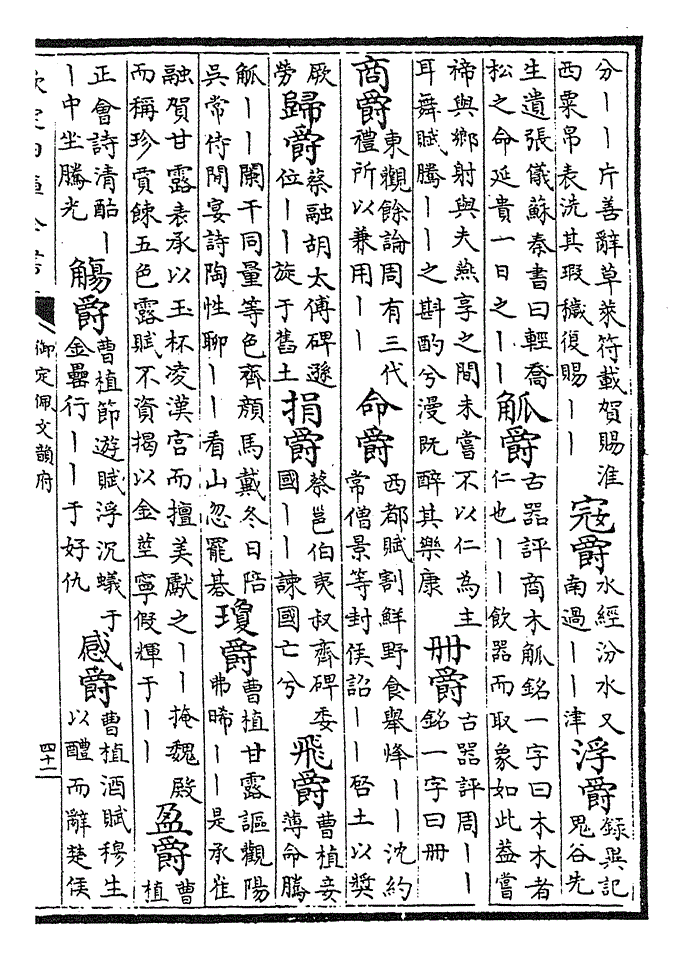 分——片善辭草萊符載賀賜淮西粟帛表洗其瑕穢復賜——寇爵水經汾水又南過——津浮爵錄異記鬼谷先
生遺張儀蘇秦書曰輕喬松之命延貴一日之——觚爵古器評商木觚銘一字曰木木者仁也——飲器而取象如此蓋嘗
禘與鄉射與夫燕享之間未嘗不以仁為主耳舞賦騰——之斟酌兮漫既醉其樂康冊爵古器評周——銘一字曰冊
商爵東觀餘論周有三代禮所以兼用——命爵西都賦割鮮野食舉烽——沈約常僧景等封侯詔——啓土以奬
厥勞歸爵蔡融胡太傅碑遜位——旋于舊土捐爵蔡邕伯夷叔齊碑委國——諫國亡兮飛爵曹植妾薄命騰
觚——闌干同量等色齊顔馬戴冬日陪吳常侍閒宴詩陶性聊——看山忽罷碁瓊爵曹植甘露謳觀陽弗晞——是承崔
融賀甘露表承以玉杯凌漢宮而擅美獻之——掩魏殿而稱珍賞餗五色露賦不資揭以金莖寧假輝于——盈爵曹植
正會詩清酤——中坐騰光觴爵曹植節遊賦浮沉蟻于金罍行——于好仇感爵曹植酒賦穆生以醴而辭楚侯
欽定四庫全書
御定佩文韻府
四十二